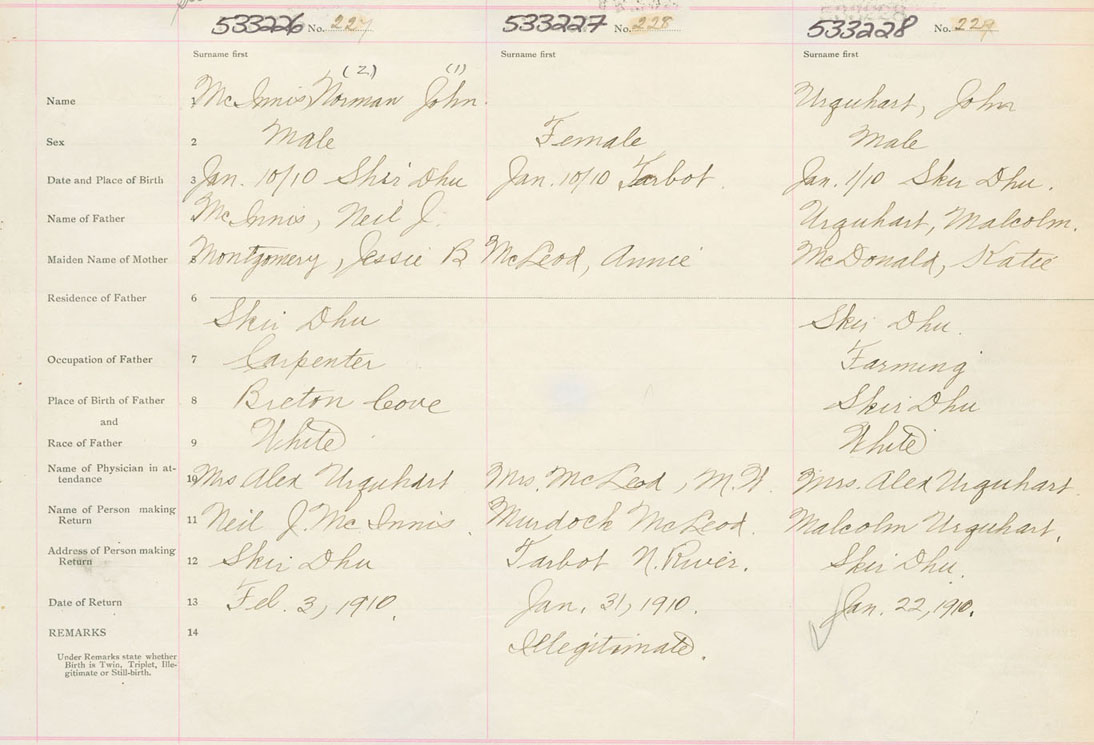 533226 No. 227 533227 No. 228 533228 No. 229
Surname first Surname first Surname first
(2) (1)
Name 1 McInnis Norman John. Urquhart, John
Sex 2 Male Female Male
Date and Place of Birth 3 Jan. 10/10 Skir Dhu Jan. 10/10 Tarbot. Jan. 1/10 Skir Dhu.
Name of Father McInnis, Neil J. Urquhart, Malcolm.
Maiden Name of Mother 5 Montgomery, Jessie B McLeod, Annie McDonald, Katie
Residence of Father 6
Skir Dhu Skir Dhu.
Occupation of Father 7 Carpenter Farming
Place of Birth of Father 8 Breton Cove Skir Dhu
and
Race of Father 9 White White
Name of Physician in at-
tendance 10 Mrs Alex Urquhart Mrs. McLeod, M.W. Mrs. Alex Urquhart.
Name of Person making
Return 11 Neil J. McInnis. Murdoch McLeod. Malcolm Urquhart.
Address of Person making
Return 12 Skir Dhu Tarbot N. River. Skir Dhu.
Date of Return 13 Feb. 3, 1910. Jan. 31, 1910. Jan. 22, 1910.
REMARKS 14 Illegitimate.
Under Remarks state whether
Birth is Twin, Triplet, Ille-
gitimate or Still-birth.